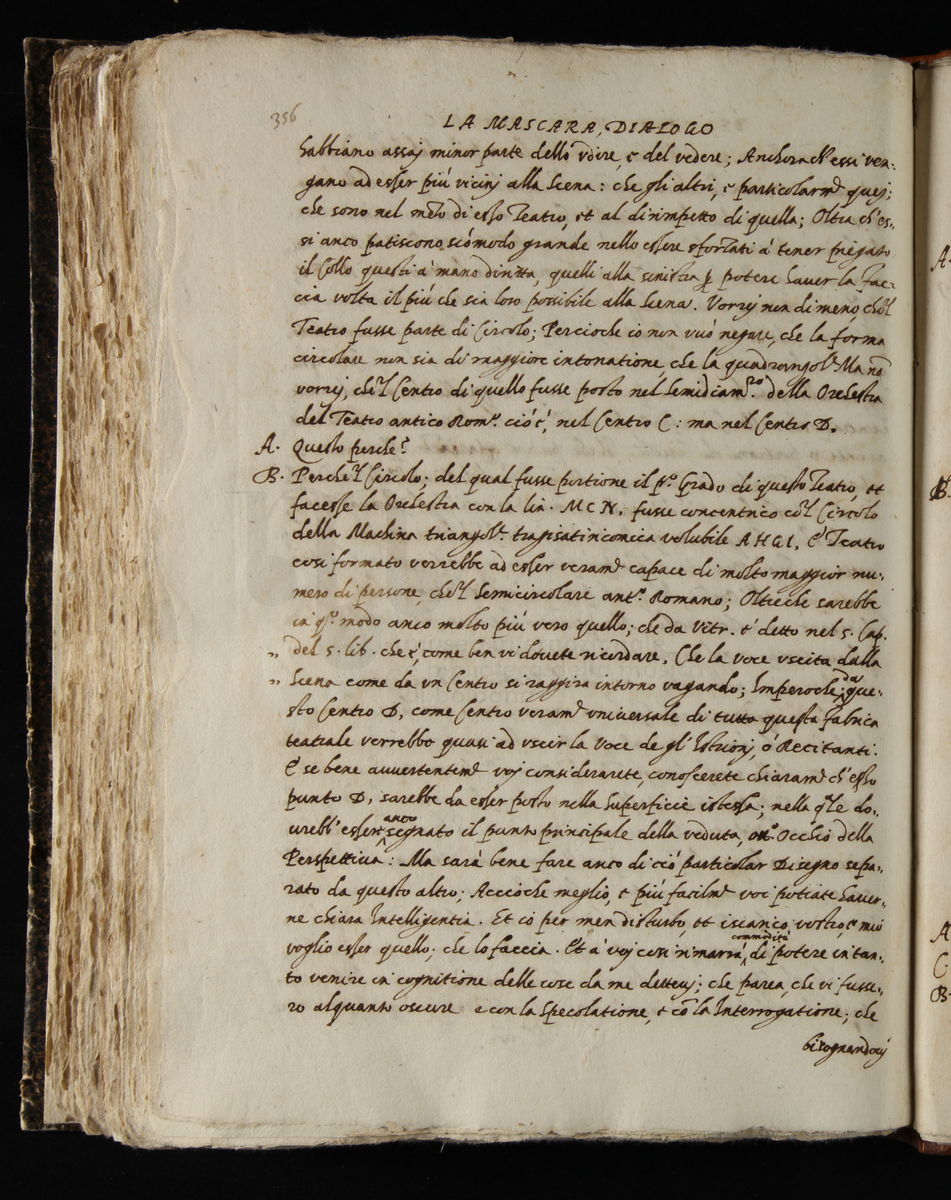 356
LA MASCARA, DIALOGO
habbiano assaj minor parte dello vdire, e del vedere; Anchora ch'essi ven-
gano ad esser più vicinj alla Scena: che gli altri, e particolarmte quej;
che sono nel mezo di esso Teatro, et al dirimpetto di quella; Oltra ch'es-
si anco patiscono scōmodo grande nello essere sforzati à tener piegato
il Collo questi à mano diritta, quelli alla sinistra p potere hauer la fac-
cia volta il più che sia loro possibile alla Scena. Vorrej non di meno, che'l
Teatro fusse parte di Circolo; Percioche io non vuò negare, che la forma
circolare non sia di maggiore intonatione, che la quadrangolre. Ma nō
vorrej, che'l Centro di quello fusse posto nel Semidiamro. della Orchestra
del Teatro antico Romo. ciò è, nel Centro C: ma nel Centro D.
A. Questo perche?
B. Perche'l Circolo; del qual fusse portione il po. Grado di questo Teatro, et
facesse la Orchestra con la lin. MCN, fusse concentrico co'l Circolo
della Machina triangolre. tragisatiricomica volubile AHGI, e'l Teatro
così formato verrebbe ad esser veramte capace di molto maggior nu-
mero di persone, che'l Semicircolare anto. Romano; Oltreche sarebbe
in qo. modo anco molto più vero quello; che da Vitr. è detto nel 5. Cap.
„ del 5. lib. che è, come ben vi douete ricordare, Che la voce vscita dalla
„ Scena come da vn Centro si raggira intorno vagando; Imperoche da que-
sto Centro D, come Centro veramte vniuersale di tutta questa fabrica
teatrale verrebbe quasi ad vscir la Voce de gl' Istrionj, ò Recitanti.
E se bene auuertentemte voj considerarete, conoscerete chiaramte ch'esso
punto D, sarebbe da esser posto nella superficie istessa; nella qle do-
urebb' essere anco segnato il punto principale della veduta, Occhio della
Perspettiua: Ma sarà bene fare anco di ciò particolar Disegno sepa-
rato da questo altro; Acciòche meglio, e più facilmte voi potiate hauer-
ne chiara Intelligentia. Et io per men disturbo, et iscarico vostro e mio
voglio esser quello, che lo faccia. Et à voj cosi rimarrà commodità di potere in tan-
to venire in cognitione delle cose da me detteuj; che parea, che vi fusse-
ro alquanto oscure e con la Specolatione, e cō la Interrogatione; che
bisognandouj
A.
B.
A
C.
B.